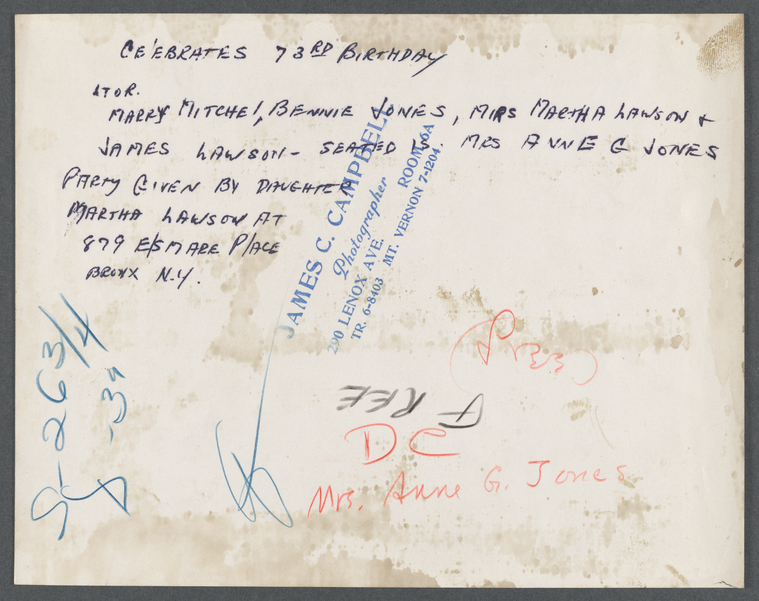 CELEBRATES 73RD BIRTHDAY
LTOR.
MARRY MITCHEL, BENNIE JONES, MIRS MARTHA LAWSON +
JAMES LAWSON - SEATED IS MRS ANNE G JONES
PARTY GIVEN BY DAUGHTER
MARTHA LAWSON AT
879 ElSMARE PlACE
BRONX N.Y.
JAMES C. CAMPBELL
Photographer
290 LENOX AVE. ROOM 6A
TR. 6-8403 MT. VERNON 7-1204
FREE
DC
Mrs. Anne G. Jones